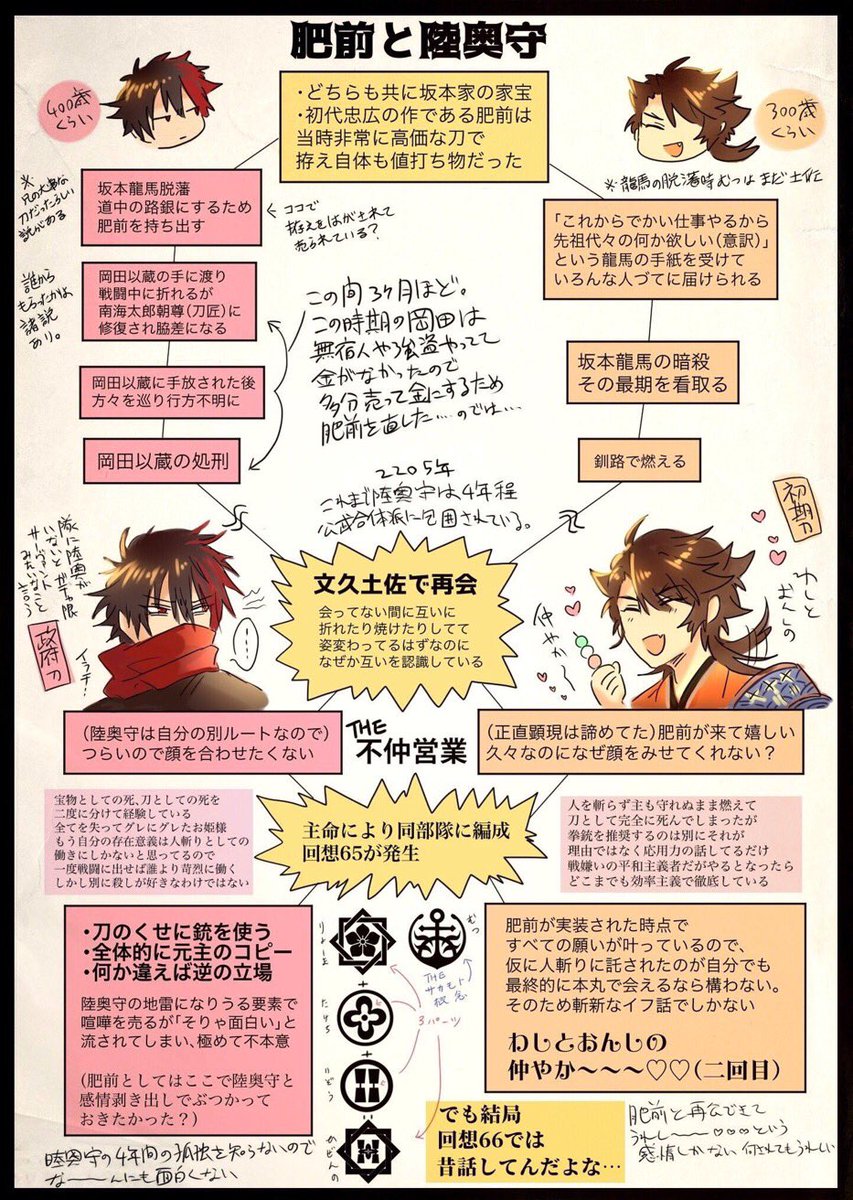 肥前と陸奥守
400歳
くらい
300歳
くらい
・どちらも共に坂本家の家宝
・初代忠広の作である肥前は
当時非常に高価な刀で
拵え自体も値打ち物だった
※
兄の大事な
刀だったらしい
説がある
坂本龍馬脱藩
道中の路銀にするため
肥前を持ち出す
ココで
拵えをはがされて
売られている?
※龍馬の脱藩時むつはまだ土佐
「これからでかい仕事やるから
先祖代々の何か欲しい(意訳)」
という龍馬の手紙を受けて
いろんな人づてに届けられる
誰から
もらったかは
諸説
あり。
岡田以蔵の手に渡り
戦闘中に折れるが
南海太郎朝尊(刀匠)に
修復され脇差になる
この間3ヶ月ほど。
この時期の岡田は
無宿人や強盗やってて
金がなかったので
多分売って金にするため
肥前を直した…のでは…
岡田以蔵に手放された後
方々を巡り行方不明に
坂本龍馬の暗殺
その最期を看取る
岡田以蔵の処刑
釧路で燃える
2205年
これまで陸奥守は4年程
公武合体派に包囲されている。
隊に陸奥が
いないと
サーヴァント
みたいなこと
言う
政府刀
イラチ!
文久土佐で再会
会ってない間に互いに
折れたり焼けたりしてて
姿変わってるはずなのに
なぜか互いを認識している
初期刀
わしと
おんしの
仲やか〜
(陸奥守は自分の別ルートなので)
つらいので顔を合わせたくない
THE
不仲営業
(正直顕現は諦めてた)肥前が来て嬉しい
久々なのになぜ顔をみせてくれない?
宝物としての死、刀としての死を
二度に分けて経験している
全てを失ってグレにグレたお姫様
もう自分の存在意義は人斬りとしての
働きにしかないと思ってるので
一度戦闘に出せば誰より苛烈に働く
しかし別に殺しが好きなわけではない
主命により同部隊に編成
回想65が発生
人を斬らず主も守れぬまま燃えて
刀として完全に死んでしまったが
拳銃を推奨するのは別にそれが
理由ではなく応用力の話してるだけ
戦嫌いの平和主義者だがやるとなったら
どこまでも効率主義で徹底している
・刀のくせに銃を使う
・全体的に元主のコピー
・何か違えば逆の立場
陸奥守の地雷になりうる要素で
喧嘩を売るが「そりゃ面白い」と
流されてしまい、極めて不本意
(肥前としてはここで陸奥守と
感情剥き出しでぶつかって
おきたかった?)
りょーま
むつ
THE
サカモト
概念
たけち
+
3パーツ
いぞう
+
ひぜんの
肥前が実装された時点で
すべての願いが叶っているので、
仮に人斬りに託されたのが自分でも
最終的に本丸で会えるなら構わない。
そのため斬新なイフ話でしかない
わしとおんしの
仲やか〜〜〜♡♡(二回目)
でも結局
回想66では
昔話してんだよな…
陸奥守の4年間の孤独を知らないので
なーーーんにも面白くない
肥前と再会できて
うれし〜〜〜♡♡♡という
感情しかない 何されてもうれしい